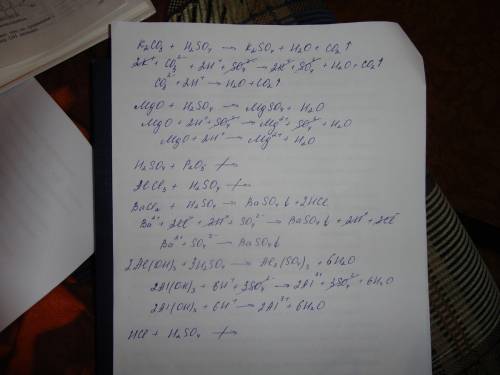 K₂CO₃ + H₂SO₄ → K₂SO₄ + H₂O + CO₂↑
2K⁺ + CO₃²⁻ + 2H⁺ + SO₄²⁻ → 2K⁺ + SO₄²⁻ + H₂O + CO₂↑
CO₃²⁻ + 2H⁺ → H₂O + CO₂↑
MgO + H₂SO₄ → MgSO₄ + H₂O
MgO + 2H⁺ + SO₄²⁻ → Mg²⁺ + SO₄²⁻ + H₂O
MgO + 2H⁺ → Mg²⁺ + H₂O
H₂SO₄ + P₂O₅ ↛
AlCl₃ + H₂SO₄ ↛
BaCl₂ + H₂SO₄ → BaSO₄↓ + 2HCl
Ba²⁺ + 2Cl⁻ + 2H⁺ + SO₄²⁻ → BaSO₄↓ + 2H⁺ + 2Cl⁻
Ba²⁺ + SO₄²⁻ → BaSO₄↓
2Al(OH)₃ + 3H₂SO₄ → Al₂(SO₄)₃ + 6H₂O
2Al(OH)₃ + 6H⁺ + 3SO₄²⁻ → 2Al³⁺ + 3SO₄²⁻ + 6H₂O
2Al(OH)₃ + 6H⁺ → 2Al³⁺ + 6H₂O
HCl + H₂SO₄ ↛